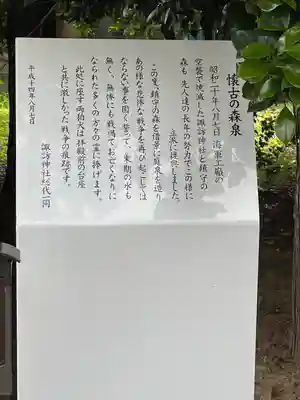 懐古の森泉
昭和二十年八月七日 海軍工廠の
空襲で焼滅した諏訪神社と鎮守の
森も 先人達の長年の努力でこの様に
立派に復興しました。
この度、鎮守の森を借景に庭泉を造り
あの様な悲惨な戦争を再び起こしては
ならない事を固く誓って、末期の水も
無く、無惨にも戦禍でお亡くなりに
なられた多くの方々の霊に捧げます。
此処に座す両狛犬は拝殿前の台座
と共に激しかった戦争の痕跡です。
平成十四年八月七日
諏訪神社総代一同